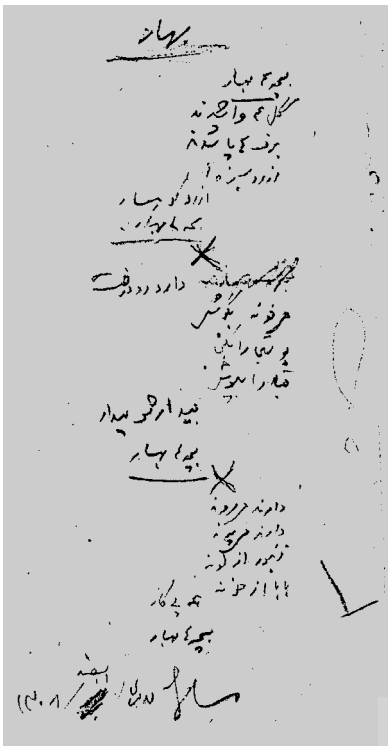 بهار
بچه ها بهار
گل ها وا شدند
برف ها پا شدند
از رو سبزه ها
از رو کوهسار
بچه ها بهار
دارد رو درخت
میخونه بگوش
پوستین را بکن
قبا را بپوش
بیدار شو بیدار
بچه ها بهار
دارند میروند
دارند میپرند
زنبور از لونه
بابا از خونه
همه پی کار
بچه ها بهار
اسفند
۱۳۰۸